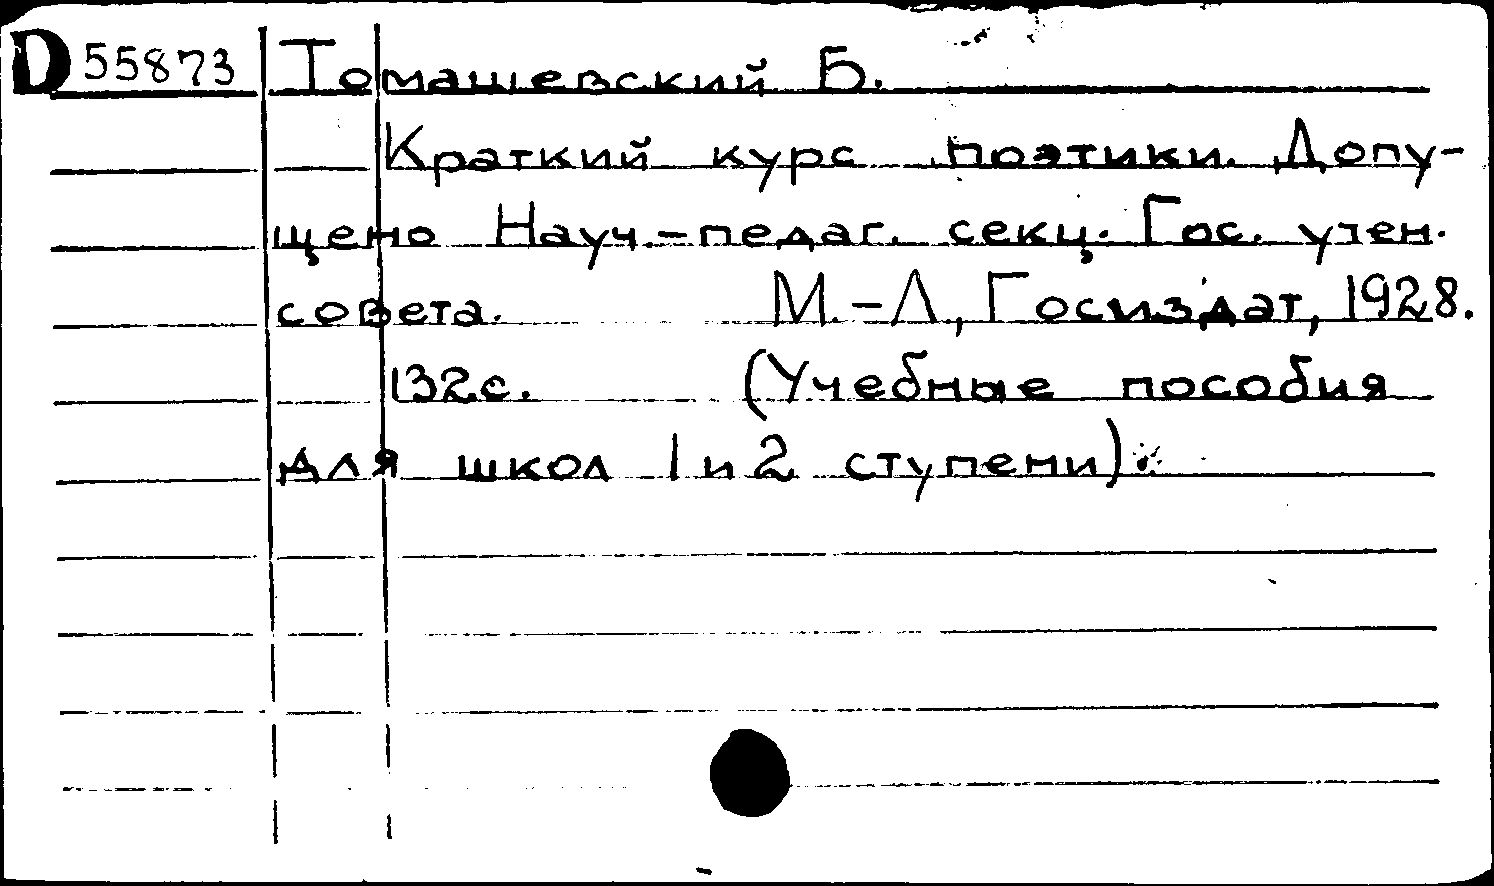 D 55873 Томашевский Б.
Краткий курс поэтики. Допу-
щено Науч.-педаг. секц. Гос. учен.
совета. М.-Л., Госиздат, 1928.
132с. (Учебные пособия
для школ 1 и 2 ступени).